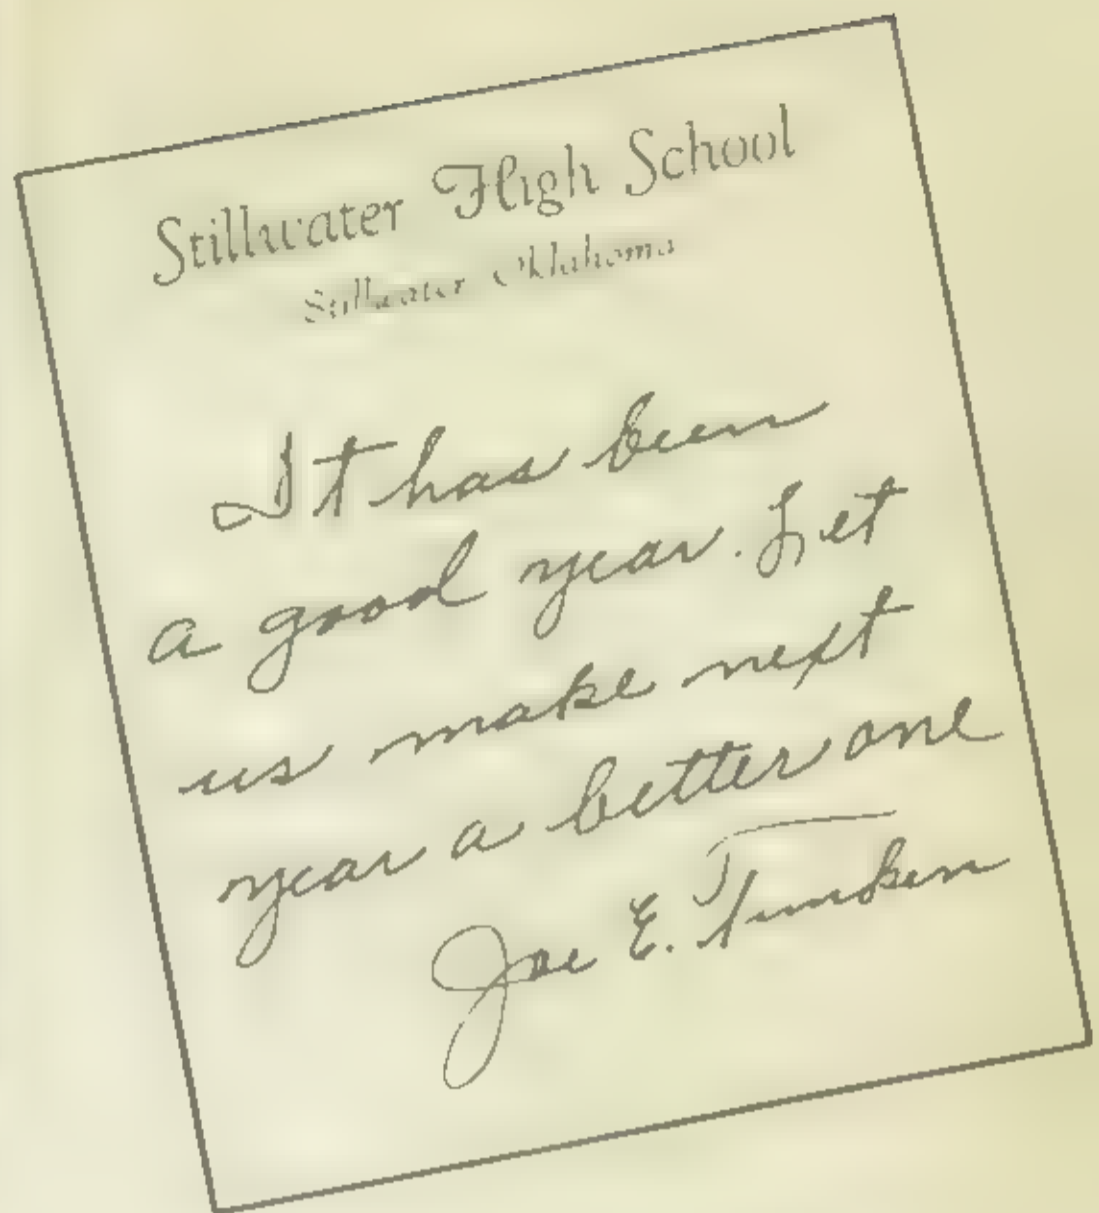 Stillwater High School
Stillwater Oklahoma
It has been
a good year. Let
us make next
year a better one
Joe E. Timken